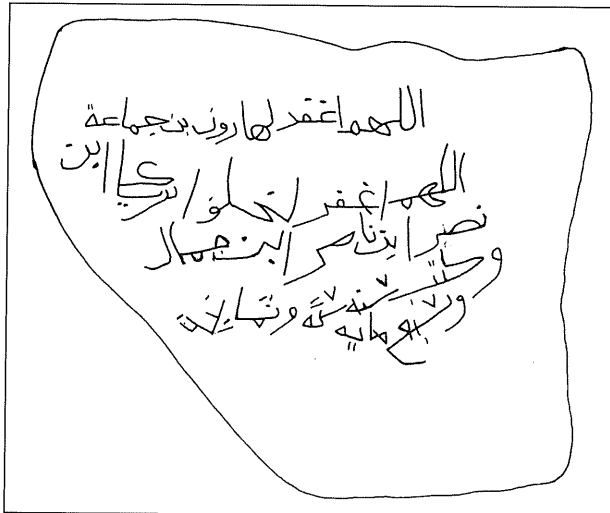 اللهم اغفر لهارون بن جماعة
اللهم اغفر ابن
نصر ابن ناصر ابن جمال
وكتب سنة ستة وثمانين
وتسع مايه